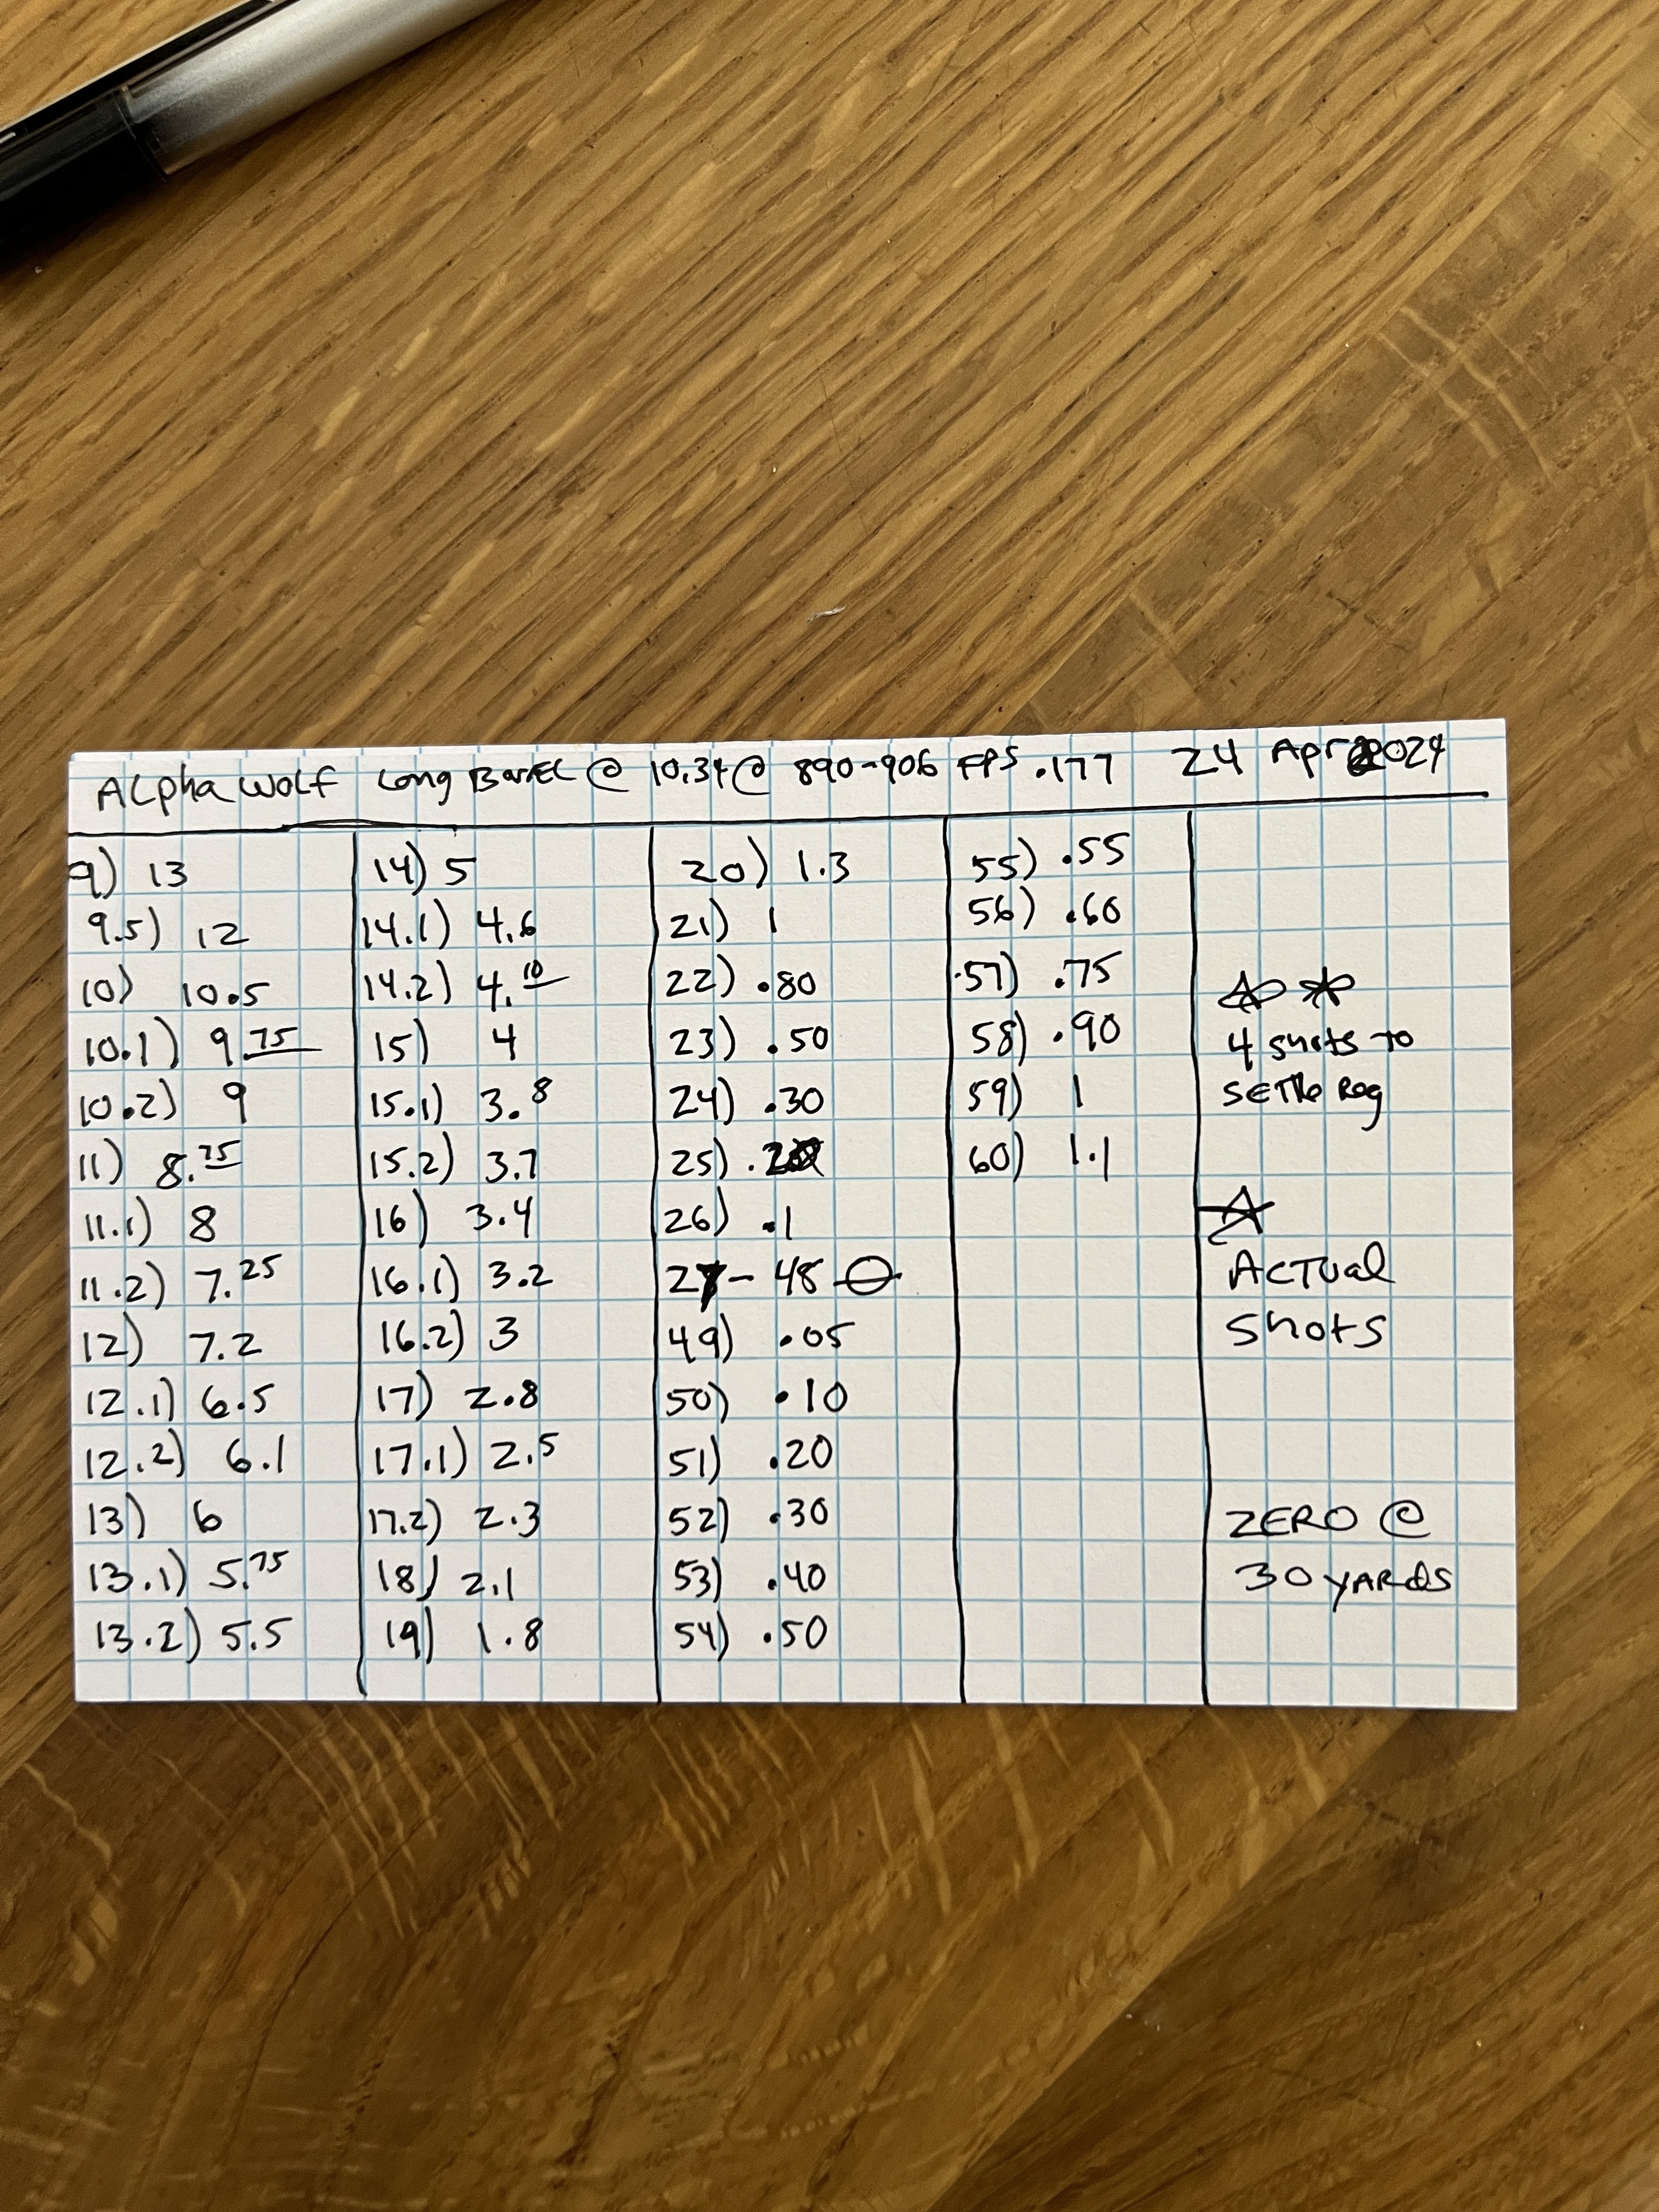 Alpha Wolf Long Barrel @ 10.34 @ 890-906 FPS .177 24 Apr 2024
9) 13
9.5) 12
10) 10.5
10.1) 9 75
10.2) 9
11) 8.75
11.1) 8
11.2) 7.25
12) 7.2
12.1) 6.5
12.2) 6.1
13) 6
13.1) 5.75
13.2) 5.5
14) 5
14.1) 4.6
14.2) 4.10
15) 4
15.1) 3.8
15.2) 3.7
16) 3.4
16.1) 3.2
16.2) 3
17) 2.8
17.1) 2.5
17.2) 2.3
18) 2.1
19) 1.8
20) 1.3
21) 1
22) .80
23) .50
24) .30
25)
26) .1
27-48
49) .05
50) .10
51) .20
52) .30
53) .40
54) .50
55) .55
56) .60
57) .75
58) .90
59) 1
60) 1.1
4 shots to
settle Reg
Actual
Shots
ZERO @
30 YARDS